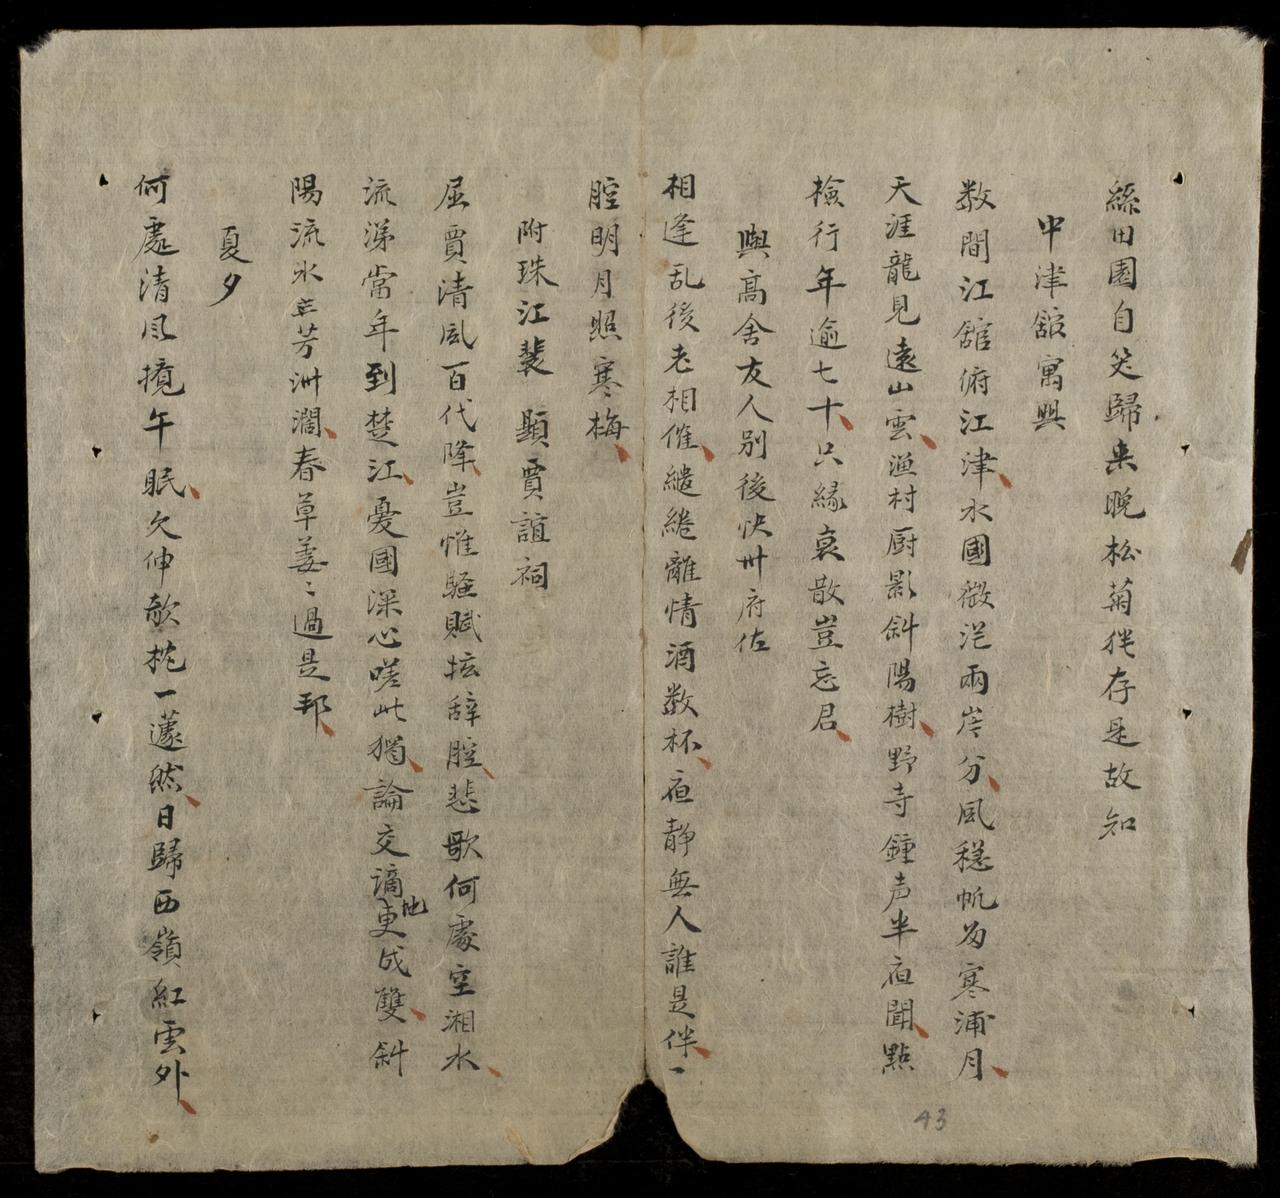 絲田園自笑歸来晚松菊猶存是故知
中津舘寓興
数間江舘俯江津水國微茫兩岸分風穏帆為寒浦月
天涯龍見遠山雲漁村厨影斜陽樹野寺鍾声半夜聞點
檢行年逾七十只縁衰散豈忘君
與高舍友人別後快卅府佐
相逢乱後老相催繾綣離情酒数杯夜静無人誰是伴一
腔明月照寒梅
附珠江裴顕賈誼祠
屈賈清風百代降豈惟騷賦擅辞腔悲歌何處空湘水
流涕當年到楚江憂國深心嗟此獨論交謫地更成雙斜
陽流水芳洲濶春草萋〻過是邦
夏夕
何處清風攪午眠欠伸欹枕一蘧然日歸西嶺紅雲外
43